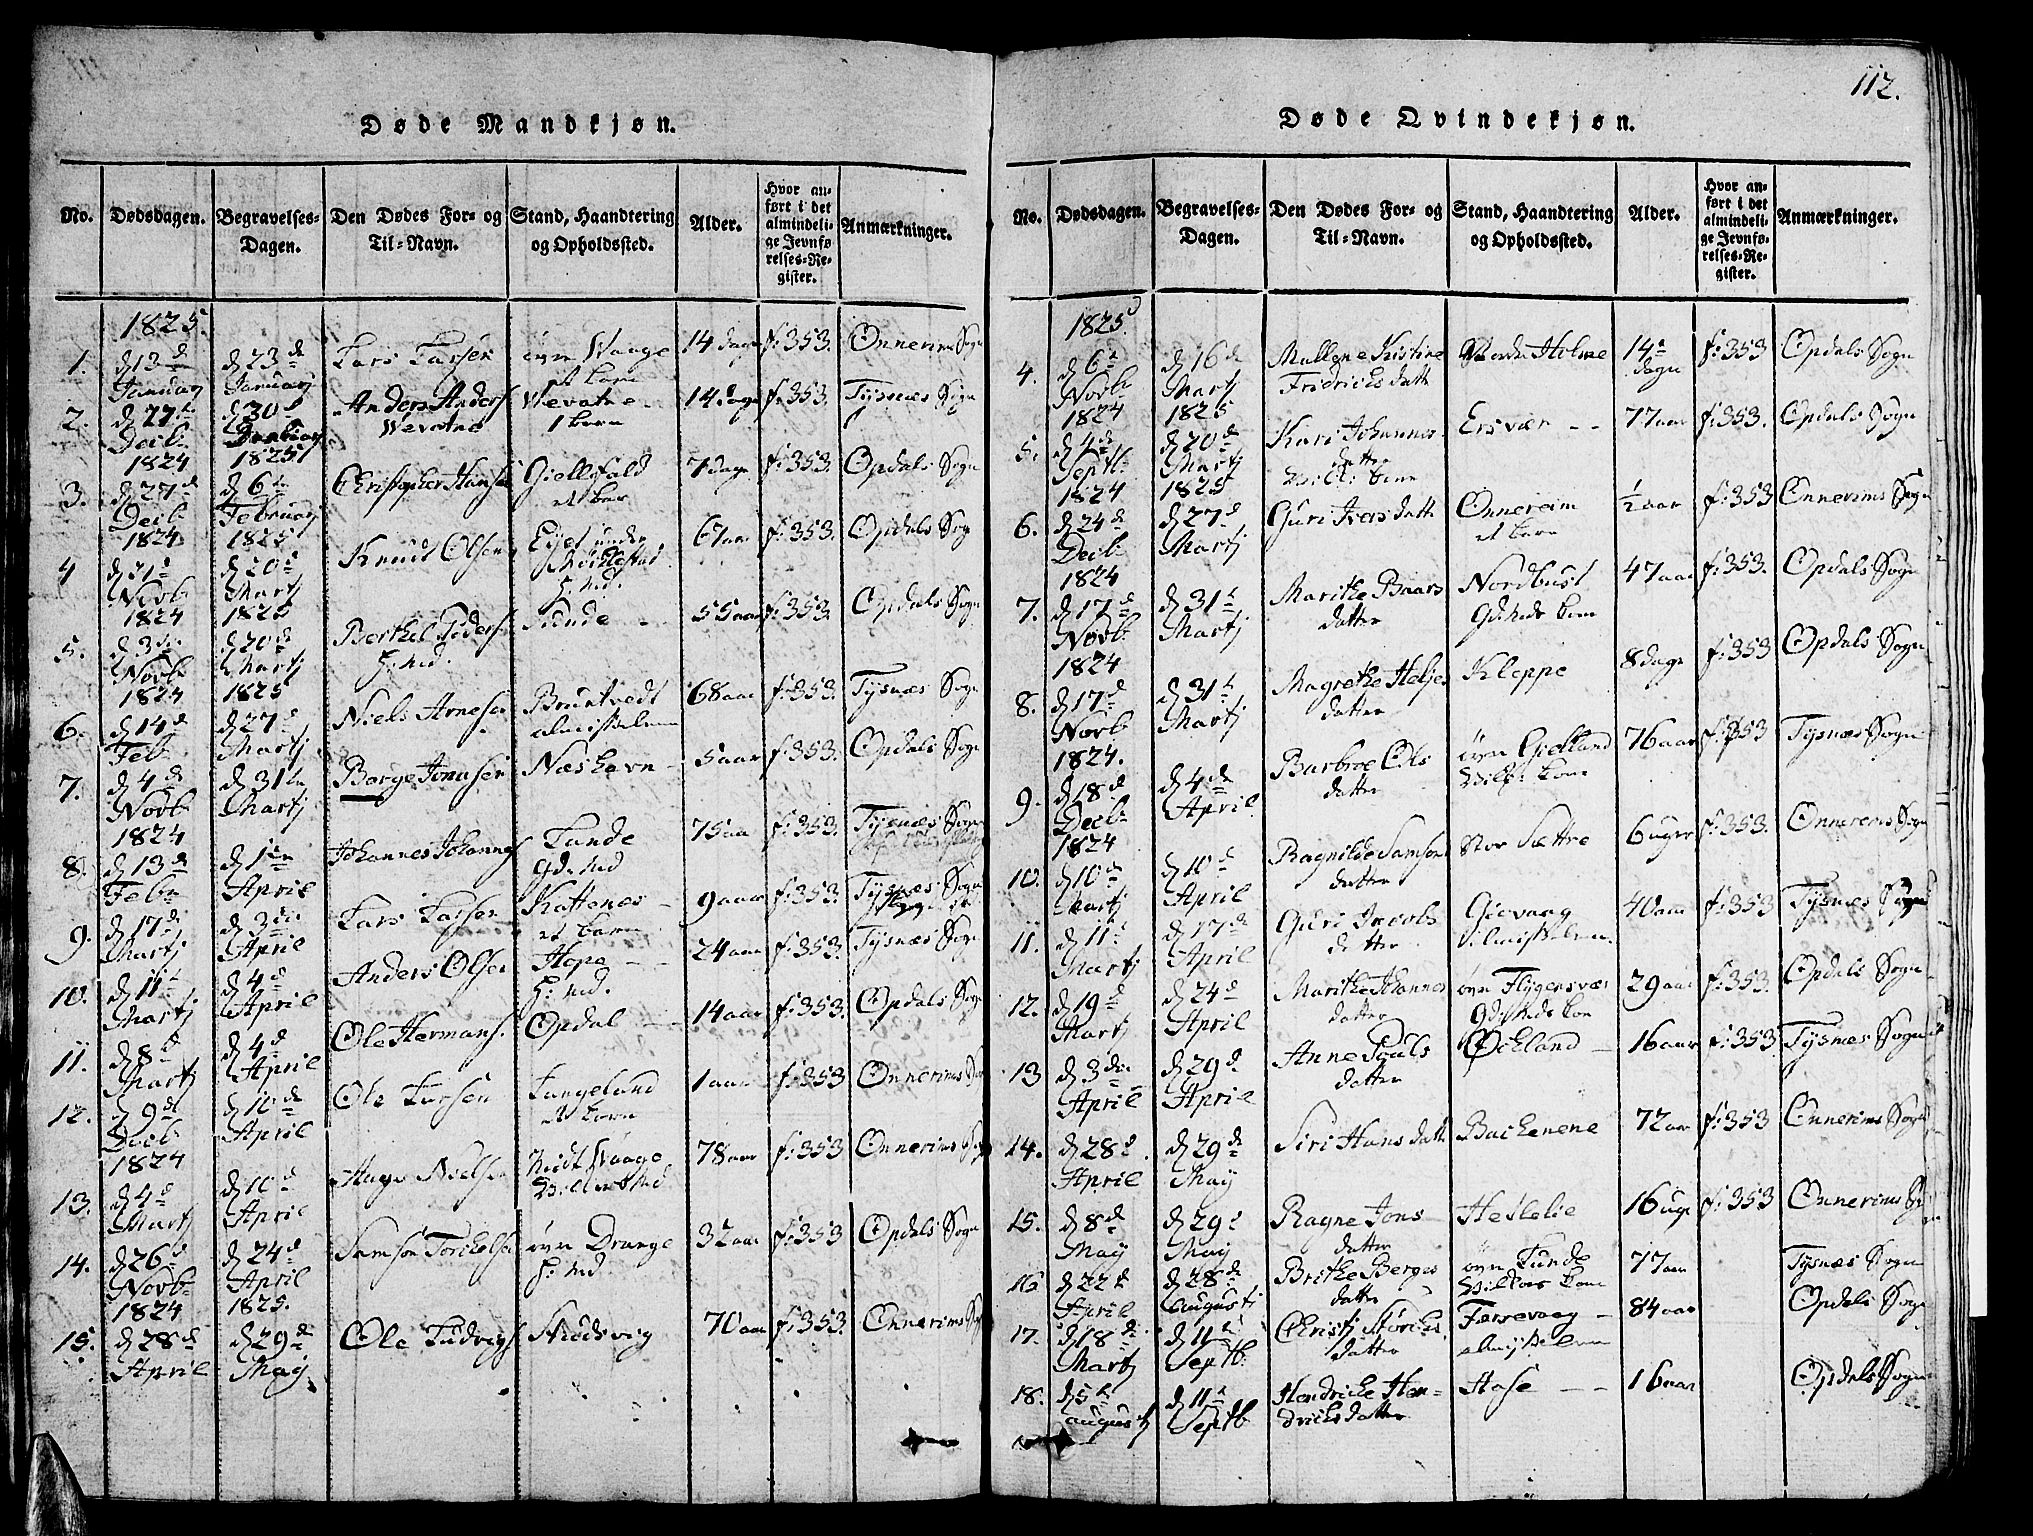 112.
Døde Mandkjøn.
No. Dødsdagen. Begravelses-Dagen. Den Dødes For- og Til-Navn. Stand, Haandtering og Opholdssted. Alder. Hvor anført i det almindelige Jevnførelses-Register. Anmærkninger.
1825.
1. d 13 d Januarj d 23 de Januarj Lars Larsen Waage et barn 14 dage f: 353. Onnerims Sogn
2. d 27 Decb: 1824 d 30 1825 Anders Anders Wevatne Wevatne 1 barn 14 dage f: 353. Tysnæs Sogn
3. d 27 d Decb: 1824 d 6 Februarj 1825 Christopher Hansen Giellefald et bar 7 dage f: 353. Opdals Sogn
4 d 21 Novb 1824 d 20 d Martj 1825 Knudt Olsen Eyet under H: Md. 67 aar f: 353. Opdals Sog
5. d 3 Novb: 1824 d 20 de Martj 1825 Berthel Peders H: Md. Sunde - 55 aar f: 353. Opdals Sogn
6. d 14 d Feb d 27 d Martj Niels Arnesen Bruntvedt almisselem 68 aar f: 353. Tysnæs Sogn
7. d 4 de Novb 1824 d 31 te Martj Borge Jonnsen Næshavn - 5 aar f: 353. Opdals Sogn
8. d 13 d Feb d 1 ten April Johannes Johannes Lande Gd: Md 75 aa f: 353. Tysnæs Sogn
9. d 17 d Martj d 3 die April Lars Larsen Kattenes - et barn 9 aar f: 353. Tysnæs Sogn
10. d 11 t Martj d 4 d April Anders Olsen Hope - - H: Md. 24 aar f: 353. Tysnæs Sogn
11. d 8 d Martj d 4 d April Ole Hermans Opdal - 14 aar f: 353. Opdals Sogn
12. d 9 de Decb 1824 d 10 de April Ole Larsen Langeland et barn 1 aar f: 353 Onnerims Sogn
13. d 4 d Martj d 10 d April Aage Nielsen Midt Waage 78 aar f: 353 Onnerims Sogn
14. d 26 d Novb: 1824 d 24 d April 1825. Samson Torkelsen øvre Drange H: Md. 32 aar f: 353 Opdals Sogn
15. d 28 d April d 29 d May Ole Ludvigs Skudsvig 70 aar f: 353. Onnerims Sogn
Døde Qvindekjøn.
No. Dødsdagen. Begravelses-Dagen. Den Dødes For- og Til-Navn. Stand, Haandtering og Opholdssted. Alder. Hvor anført i det almindelige Jevnførelses-Register. Anmærkninger.
1825
4. d 6 Novb: 1824 d 16 d Martj 1825 Mallene Kristine Fridrichs datt Holme 14 dage f: 353 Opdals Sogn
5. d 4 de Septb: 1824 d 20 d Martj 1825 Kari Johannes datter Ersvær - - 77 aar f: 353. Opdals Sogn
6. d 24 d Decb: 1824 d 27 d Martj Guri Ivers datte Onnereim et barn ½ aar f: 353 Onnerims Sogn
7. d 17 d Novb: 1824 d 31 t Martj Marithe Baars datter Nordbust Gd: Mds kone 47 aar f: 353. Opdals Sogn
8. d 17 d Novb: 1824. d 31 t Martj Magrethe Heljes datter Kleppe 8 dage f: 353 Opdals Sogn
9. d 18 d Decb: 1824 d 4 de April Barbroe Ols datter øvre Gielland 76 aar f: 353 Tysnæs Sogn
10. d 10 d Martj d 10 d April Ragnilde Samsons datter Stor Sættre 6 uger f: 353. Onnerims Sogn
11. d 11 t Martj d 17 d April Guri Jacobs datter Gievaag almisselem 40 aar f: 353 Tysnæs Sogn
12. d 19 d Martj d 24 d April Marithe Johannes datter øvre Flygensvær Gd: Mds kone 29 aar f: 353. Opdals Sogn
13 d 3 die April d 29 d. April Anne Pouls datter Økeland - 16 aar f: 353. Tysnæs Sogn
14. d 28 d April d 29 de May Siri Hans datte Bachenene 72 aar f: 353 Onnerims Sogn
15. d 8 d May d 29 d May Ragne Jons datter Heslelie 16 uge f: 353 Onnerims Sogn
16 d 22 d April d 28 de augustj Brithe Berges datter øvre Tunde 77 aar Tysnæs Sogn
17. d 18 de Martj d 11 t Septb: Christj Størchs datter Færevaag - almisselem 84 aar Opdals Sogn
18. d 5 t augustj d 11 t Septb Hendriche Hendrichs datter Hose - - 16 aar Opdals Sogn